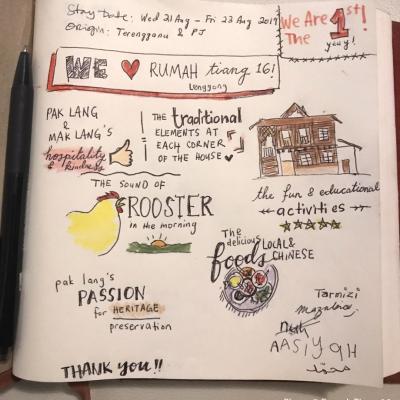 Stay Date: Wed 21 Aug - Fri 23 Aug 2019
Origin: Terengganu & PJ
We Are
The 1st!
yeay!
WE ♥ RUMAH tiang 16!
Lenggong
PAK LANG
&
MAK LANG'S
hospitality
& kindness
=
THE traditional
ELEMENTS AT
EACH CORNER
OF THE HOUSE ♥
THE SOUND OF
ROOSTER
in the morning
the fun & educational
activities
The
delicious
foods LOCAL &
CHINESE
pak lang's
PASSION
for HERITAGE
preservation
Tarmizi
AASIYAH
THANK YOU!!